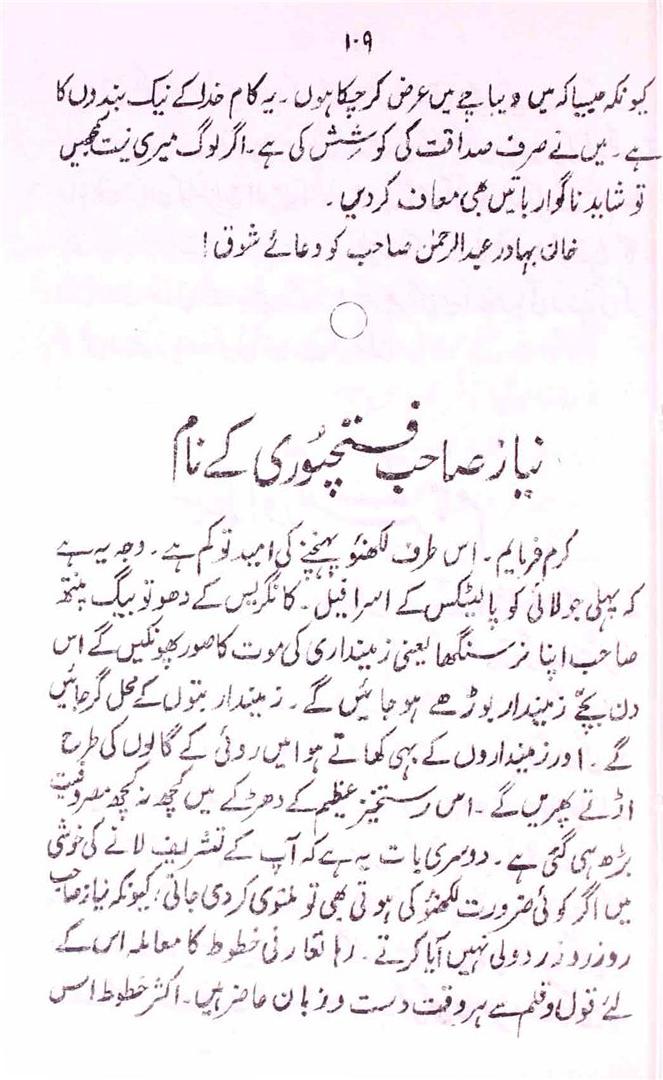 ۱۰۹
کیونکہ جیسا کہ میں دیباچے میں عرض کر چکا ہوں ۔ یہ کام خدا کے نیک بندوں کا
ہے ۔ میں نے صرف صداقت کی کوشش کی ہے ۔ اگر لوگ میری نیت سمجھیں
تو شاید ناگوار باتیں بھی معاف کر دیں ۔
خان بہادر عبدالرحمٰن صاحب کو دعائے شوق !
نیاز صاحب فتحپوری کے نام
کرم فرمایم ۔ اس طرف لکھنؤ پہنچنے کی امید تو کم ہے ۔ وجہ یہ ہے
کہ پہلی جولائی کو پالیٹکس کے اسرافیل ۔ کانگریس کے دھوتو بیگ پنتھ
صاحب اپنا نرسنگھا یعنی زمینداری کی موت کا صور پھونکیں گے اس
دن بچے زمیندار بوڑھے ہو جائیں گے ۔ زمیندار بتوں کے محل گر جائیں
گے ۔ اور زمینداروں کے بہی کھاتے ہوا میں روئی کے گالوں کی طرح
اڑتے پھریں گے ۔ اس رستخیز عظیم کے دھڑکے میں کچھ نہ کچھ مصروفیت
بڑھ ہی گئی ہے ۔ دوسری بات یہ ہے کہ آپ کے تشریف لانے کی خوشی
میں اگر کوئی ضرورت لکھنؤ کی ہوتی بھی تو ملتوی کر دی جاتی ، کیونکہ نیاز صاحب
روز روز ردولی نہیں آیا کرتے ۔ رہا تعارفی خطوط کا معاملہ اس کے
لئے قول و قلم سے ہر وقت دست و زبان حاضر ہیں ۔ اکثر خطوط اس